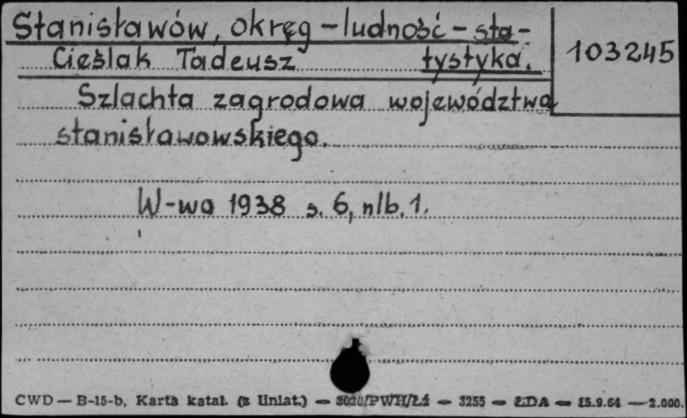 Stanisławów, okręg – ludność – sta-
Cieślak Tadeusz tystyka.
103245
Szlachta zagrodowa województwa
stanisławowskiego.
W-wa 1938 s. 6, nlb. 1.
CWD — B-15-b, Karta katal. (z liniat.) — 3020/PWH/Łź — 3255 — ŁDA — 15.9.64 — 2.000.